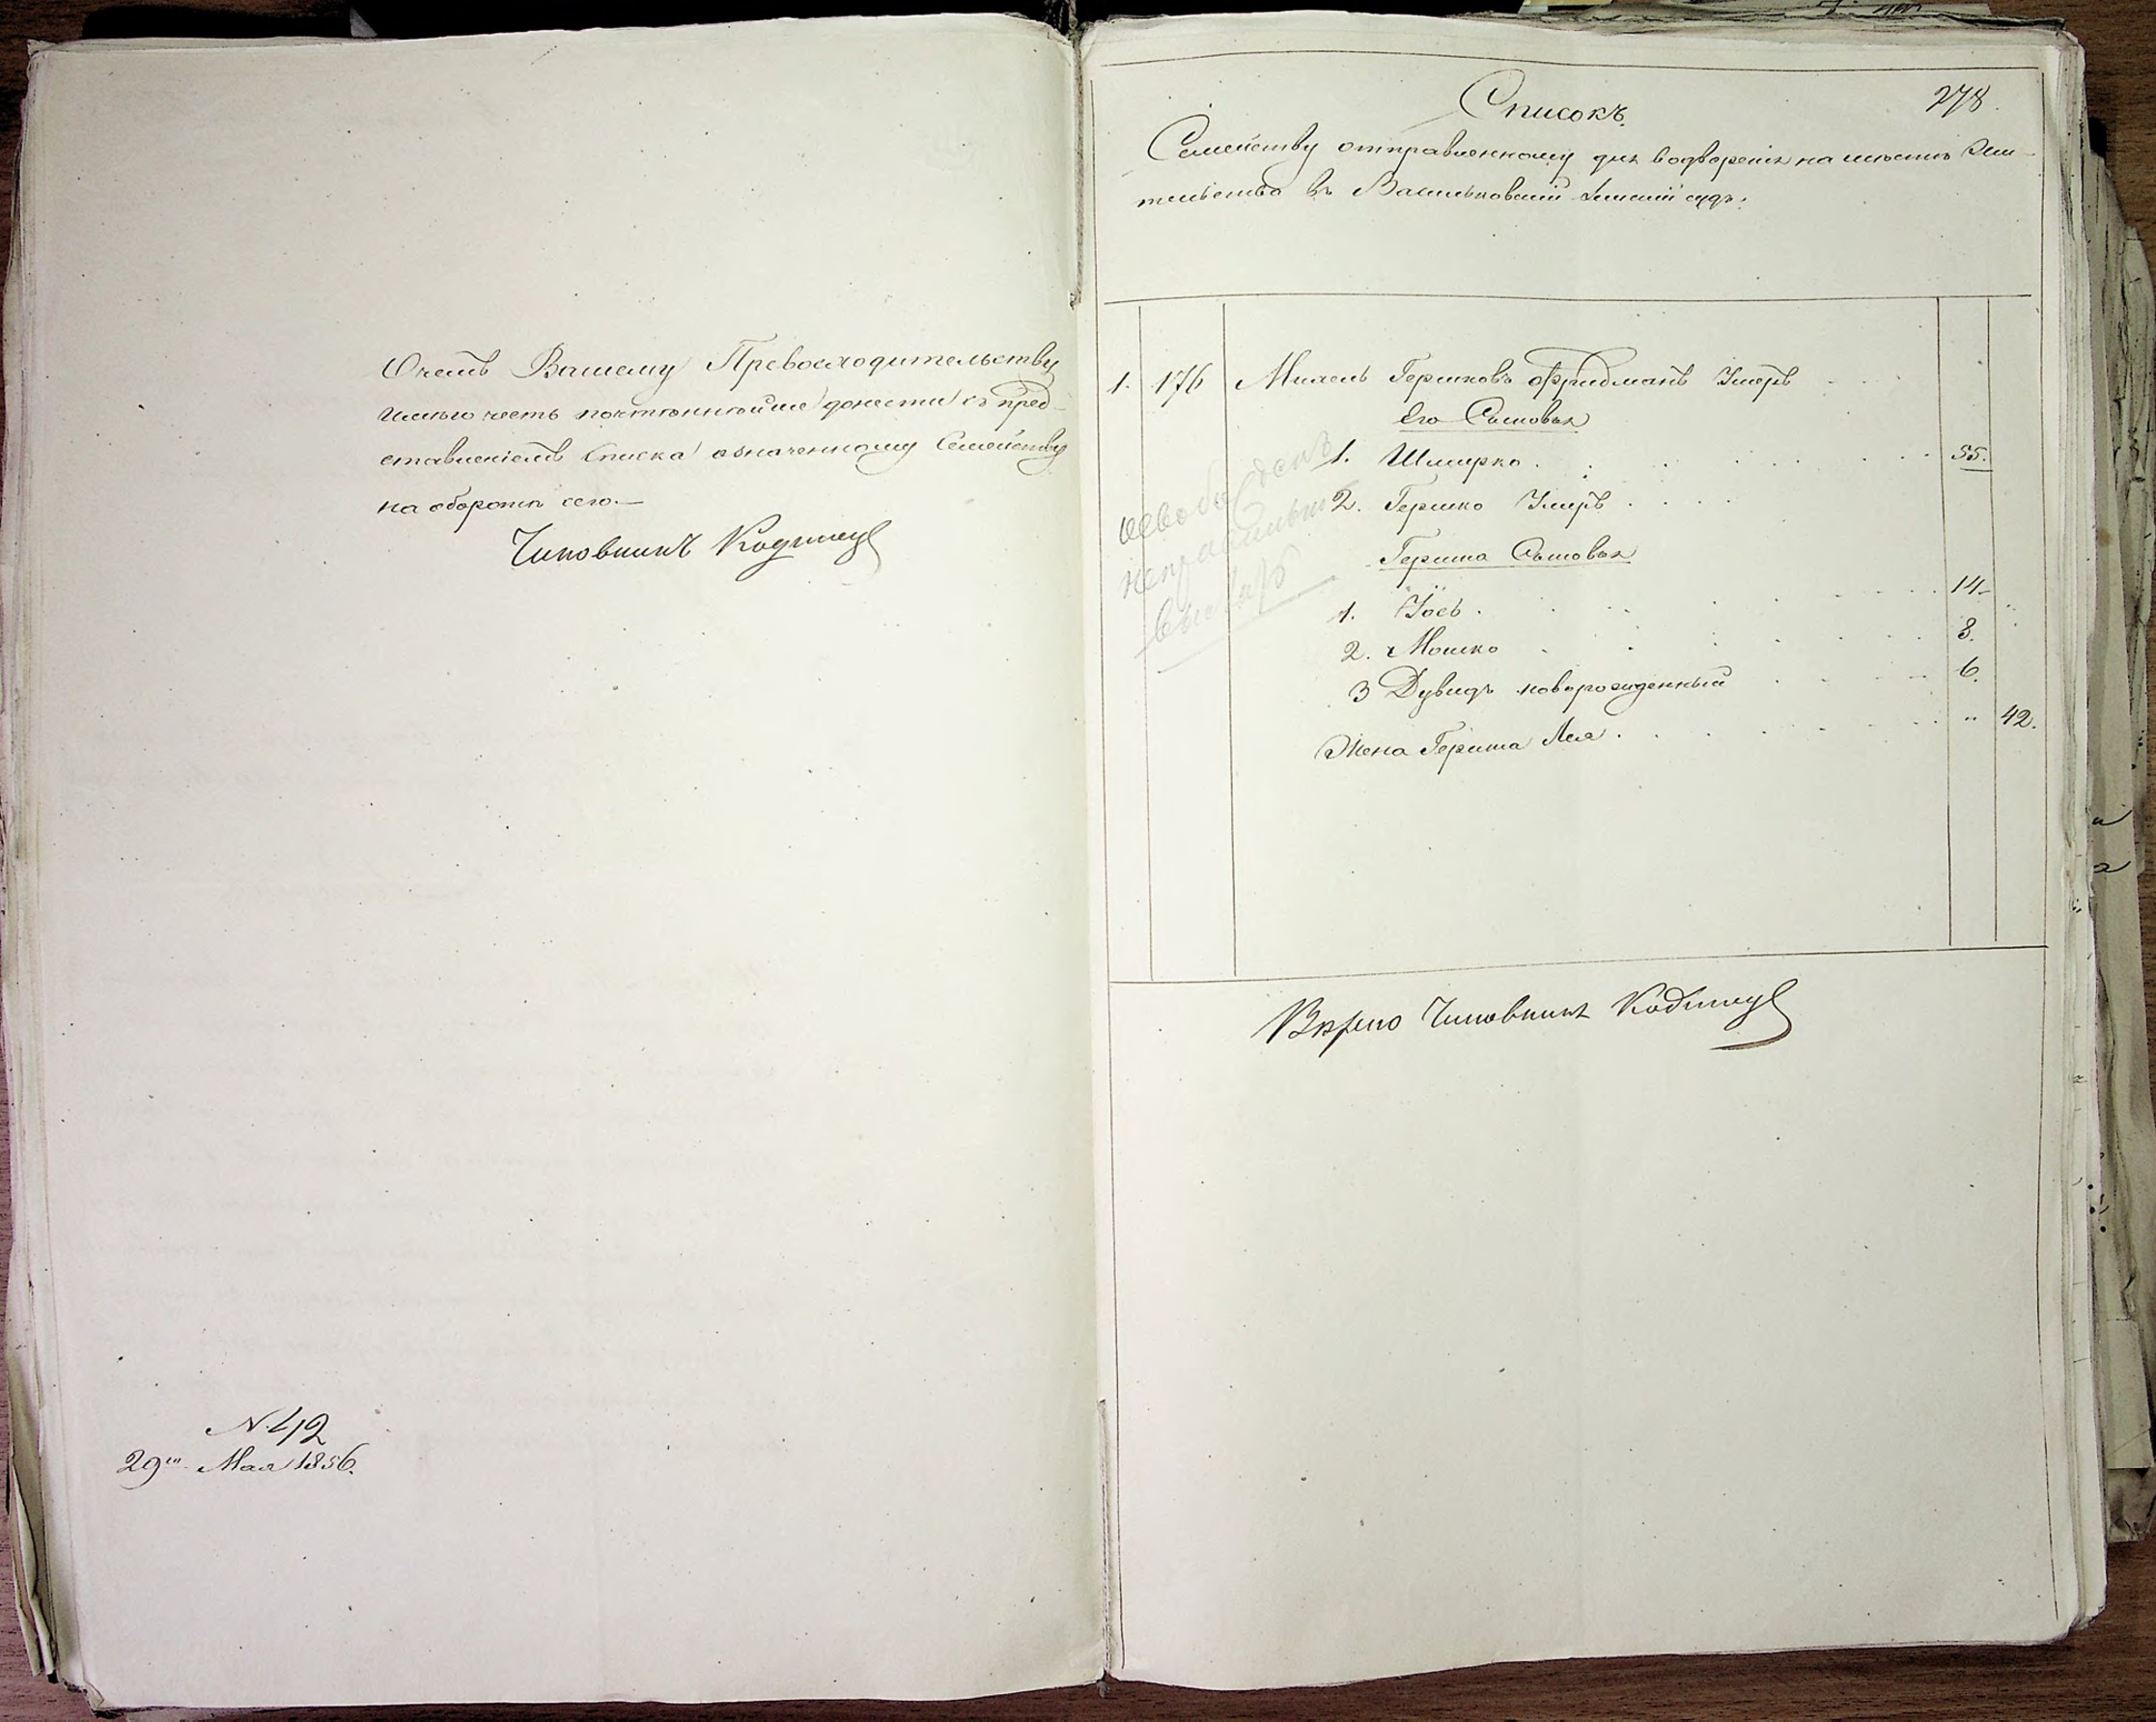 О чемъ Вашему Превосходительству
имѣю честь почтеннѣйше донести съ пред-
ставленіемъ списка означенному Семейству
на оборотѣ сего.—
Чиновникъ
N. 412
29го Мая 1856.
278.
Списокъ
Семейству отправленному для водворенія на мѣсто Жи-
тельства въ Васильковскій Земскій судъ.
1. 176 Михель Гершковъ Фридманъ Умеръ
Его Сыновья
1. Шмерко 55.
2. Гершко Умеръ
Герша Сыновья
1. Іось 14.
2. Мошко 8.
3 Дувидъ новорожденный 6.
Жена Герша Лея „ 42.
освобожденъ
неправильно
Вѣрно Чиновникъ